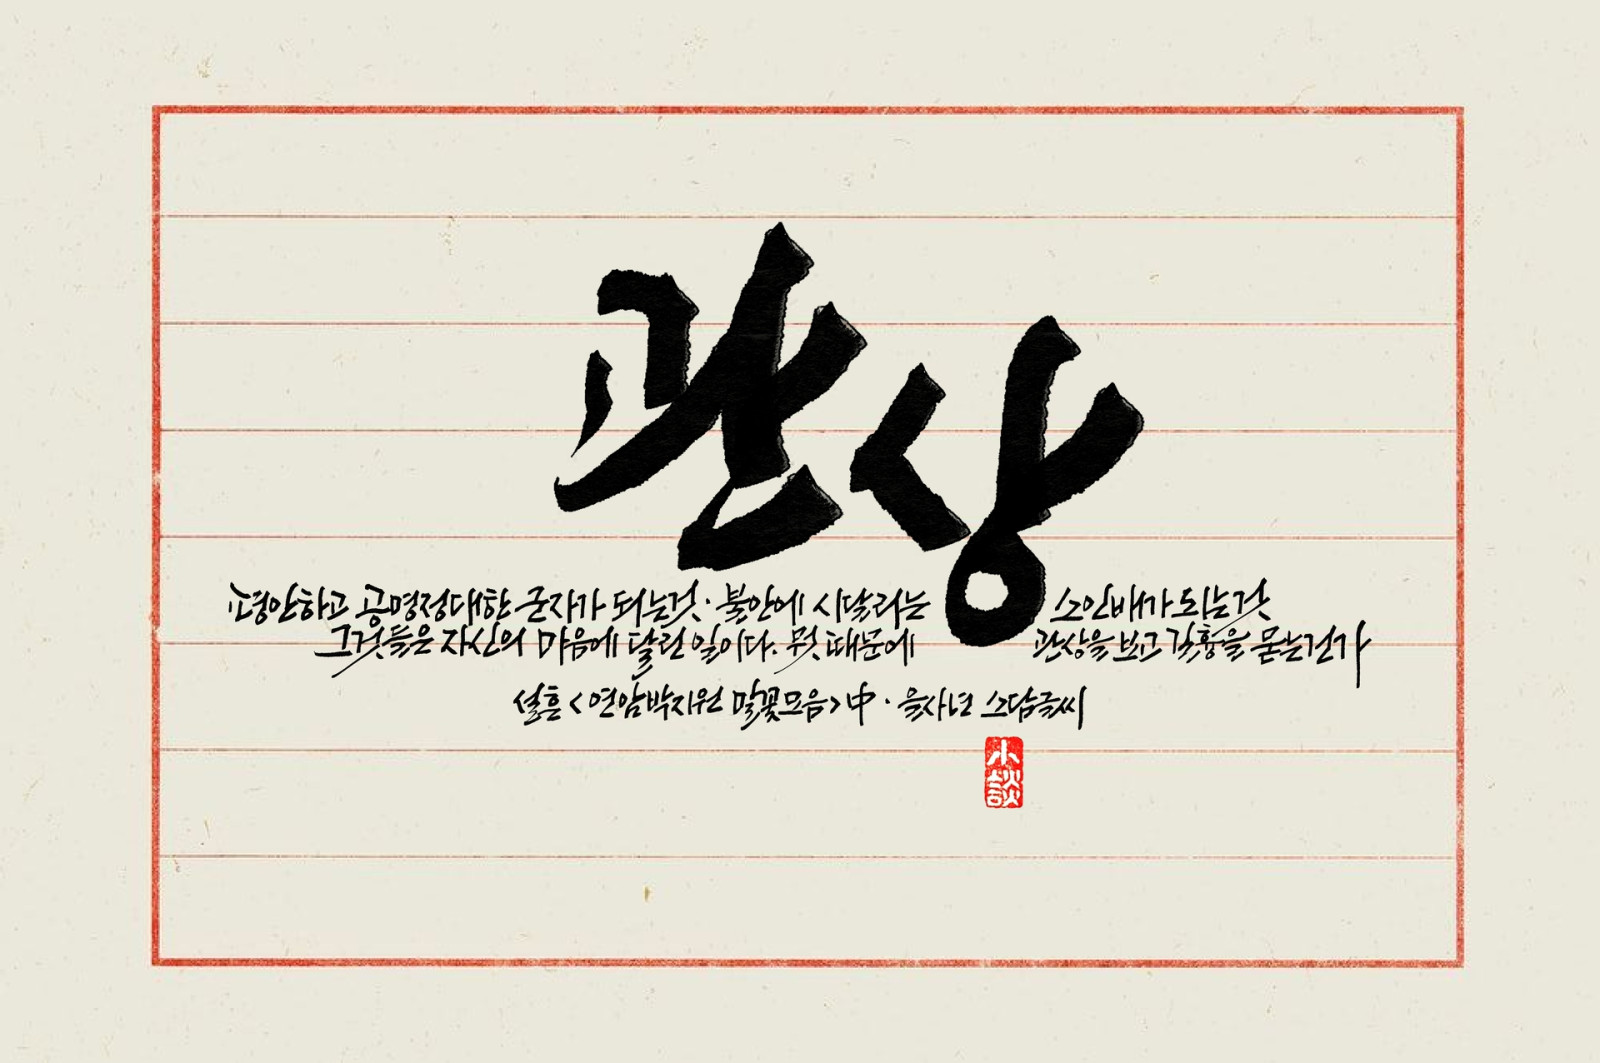 관상
평안하고 공명정대한 군자가 되는것·불안에 시달리는 소인배가 되는것
그것들은 자신의 마음에 달린 일이다. 뭣 때문에 관상을 보고 길흉을 묻는건가
설흔 <연암박지원 말꽃모음> 中 · 을사년 소담글씨
小談